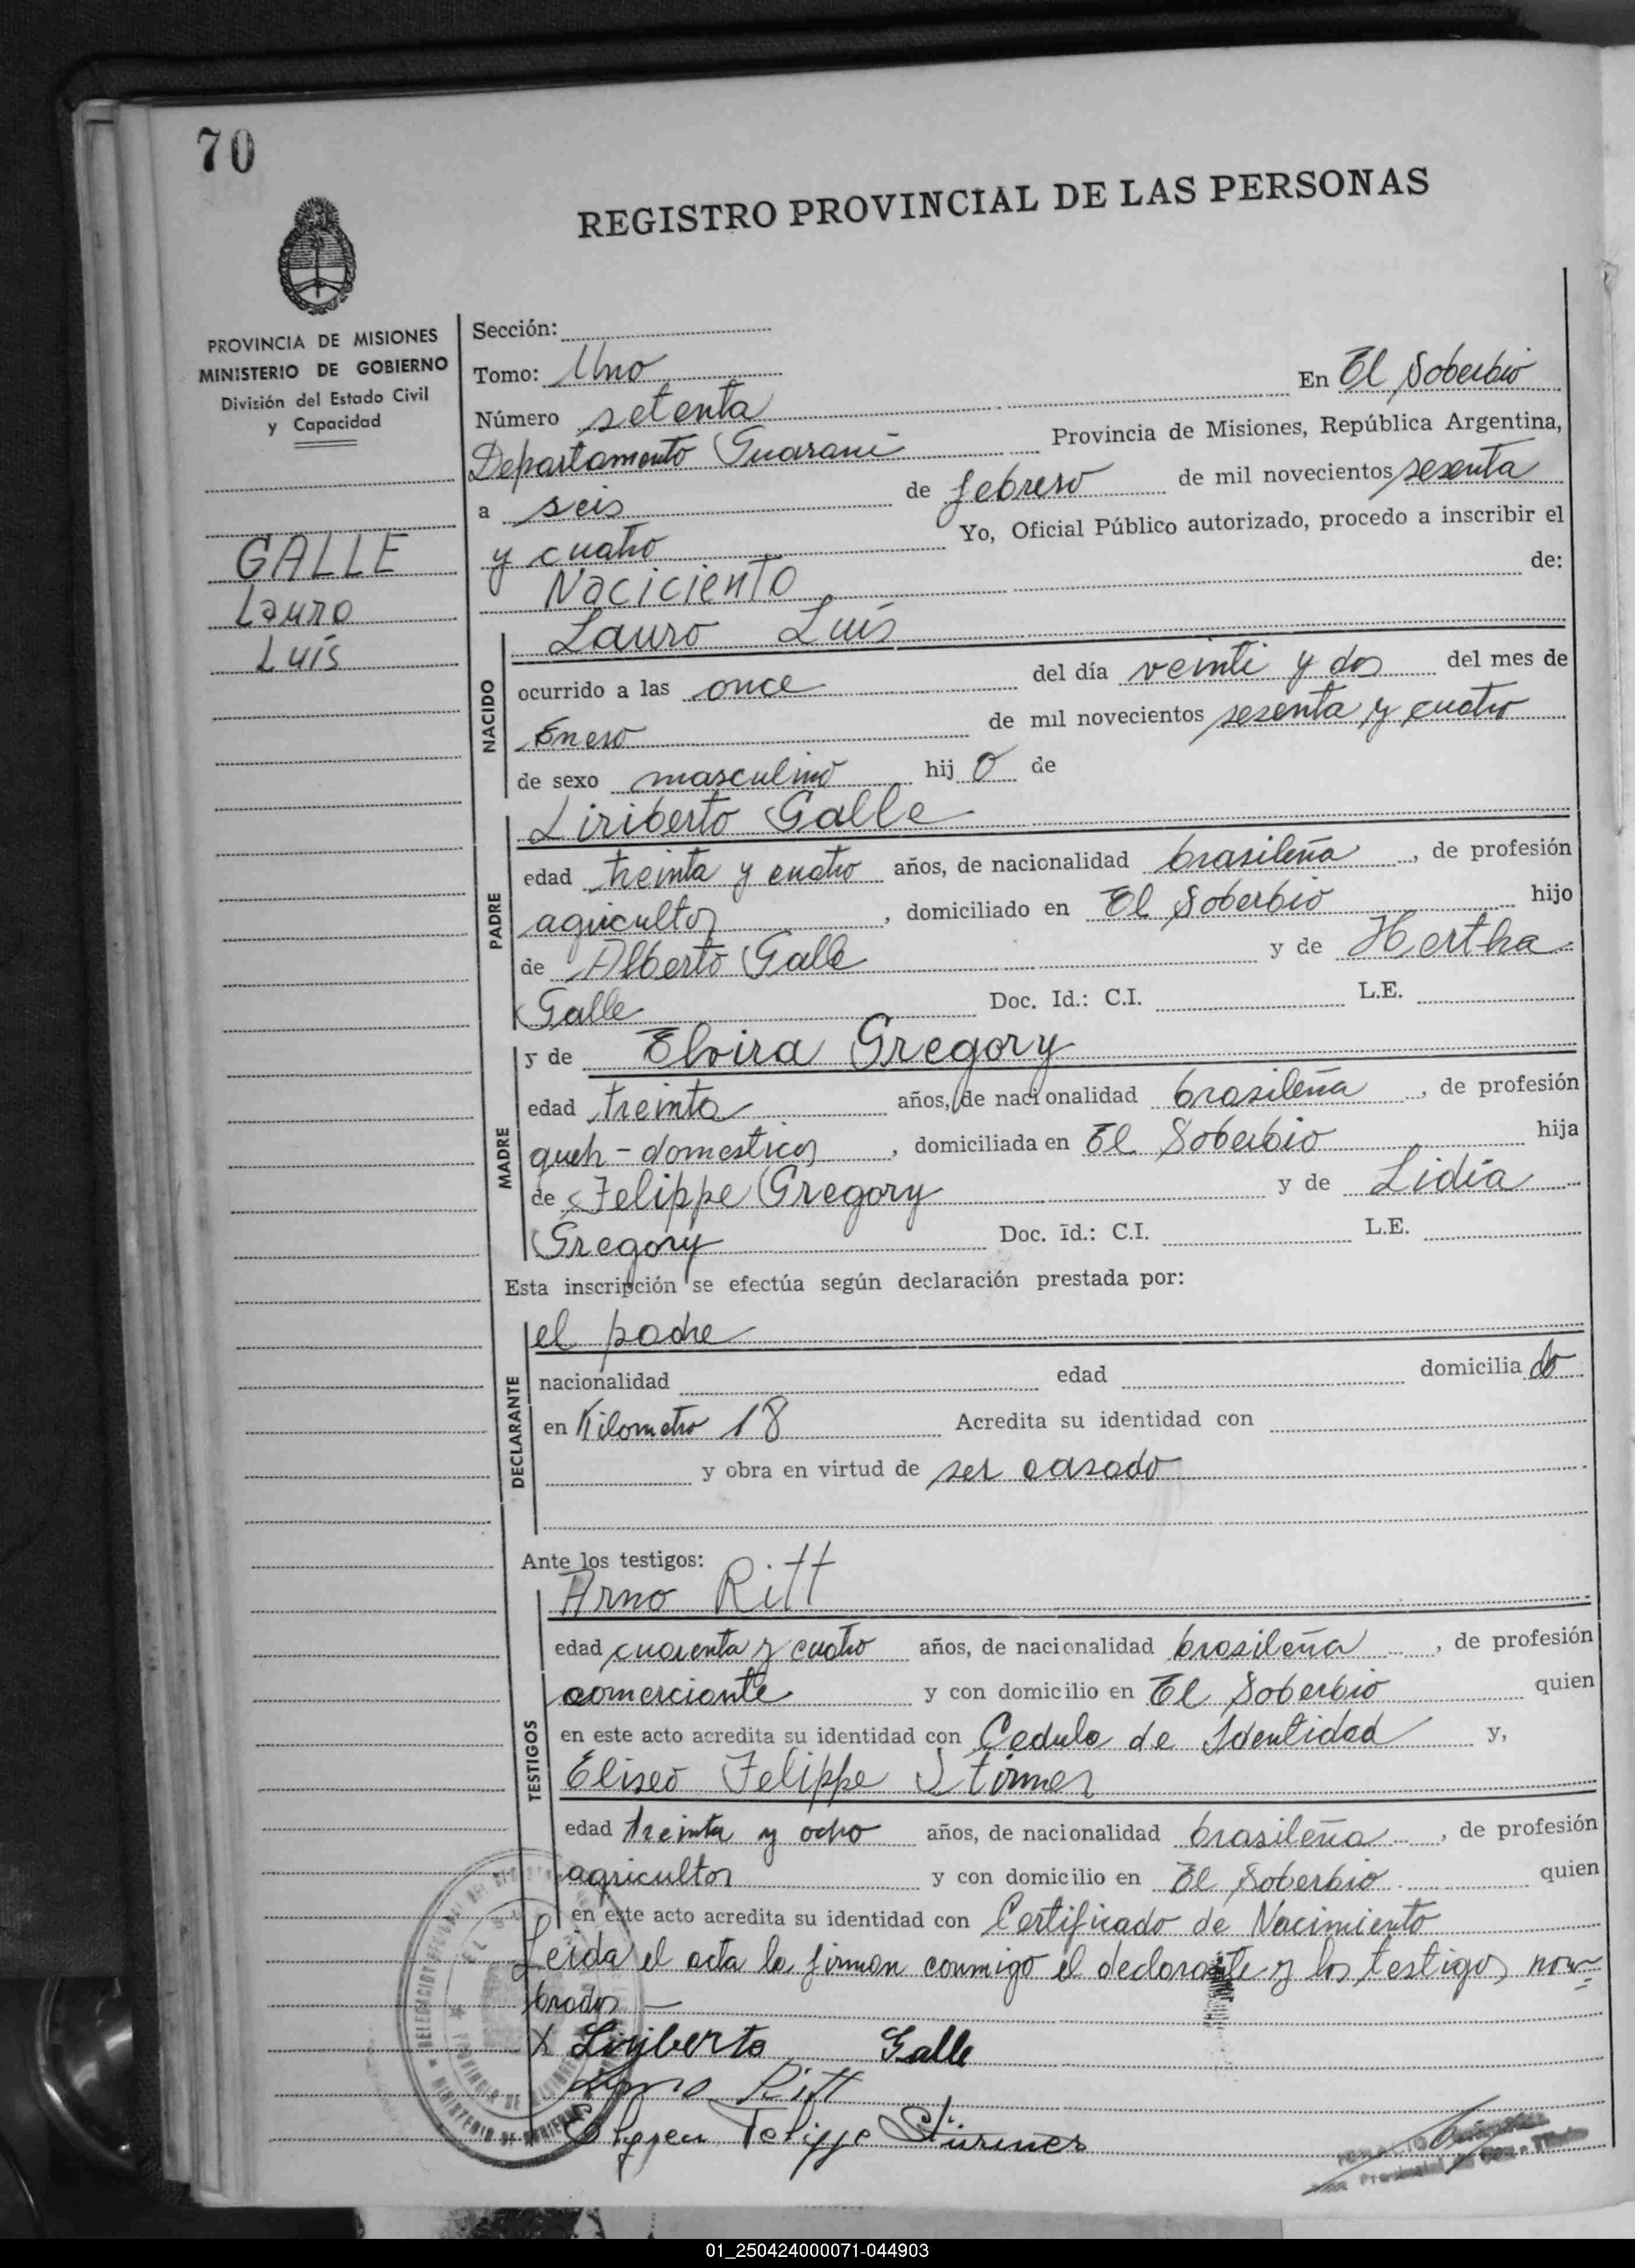 70
REGISTRO PROVINCIAL DE LAS PERSONAS
PROVINCIA DE MISIONES
MINISTERIO DE GOBIERNO
División del Estado Civil
y Capacidad
GALLE
Lauro
Luís
Sección:
Tomo: Uno
En El Soberbio
Número setenta
Departamento Guarani Provincia de Misiones, República Argentina,
a seis de febrero de mil novecientos sesenta
y cuatro Yo, Oficial Público autorizado, procedo a inscribir el
Naciciento de:
NACIDO
Lauro Luís
ocurrido a las once del día veinti y dos del mes de
Enero de mil novecientos sesenta y cuatro
de sexo masculino hij o de
PADRE
Liriberto Galle
edad treinta y cuatro años, de nacionalidad brasileña, de profesión
agricultor, domiciliado en El Soberbio hijo
de Alberto Galle y de Hertha
Galle Doc. Id.: C.I. L.E.
MADRE
y de Elvira Gregory
edad treinta años, de nacionalidad brasileña, de profesión
queh-domesticos, domiciliada en El Soberbio hija
de Felippe Gregory y de Lidia
Gregory Doc. Id.: C.I. L.E.
Esta inscripción se efectúa según declaración prestada por:
DECLARANTE
el padre
nacionalidad edad domicilia do
en Kilometro 18 Acredita su identidad con
y obra en virtud de ser casado
Ante los testigos:
TESTIGOS
Arno Ritt
edad cuarenta y cuatro años, de nacionalidad brasileña, de profesión
comerciante y con domicilio en El Soberbio quien
en este acto acredita su identidad con Cedula de Identidad y,
Eliseo Felippe Stürmer
edad treinta y ocho años, de nacionalidad brasileña, de profesión
agricultor y con domicilio en El Soberbio quien
en este acto acredita su identidad con Certificado de Nacimiento
Leida el acta la firman conmigo el declarante y los testigos nom-
brados —
X Liriberto Galle
Arno Ritt
Felippe Stürmer
01_250424000071-044903